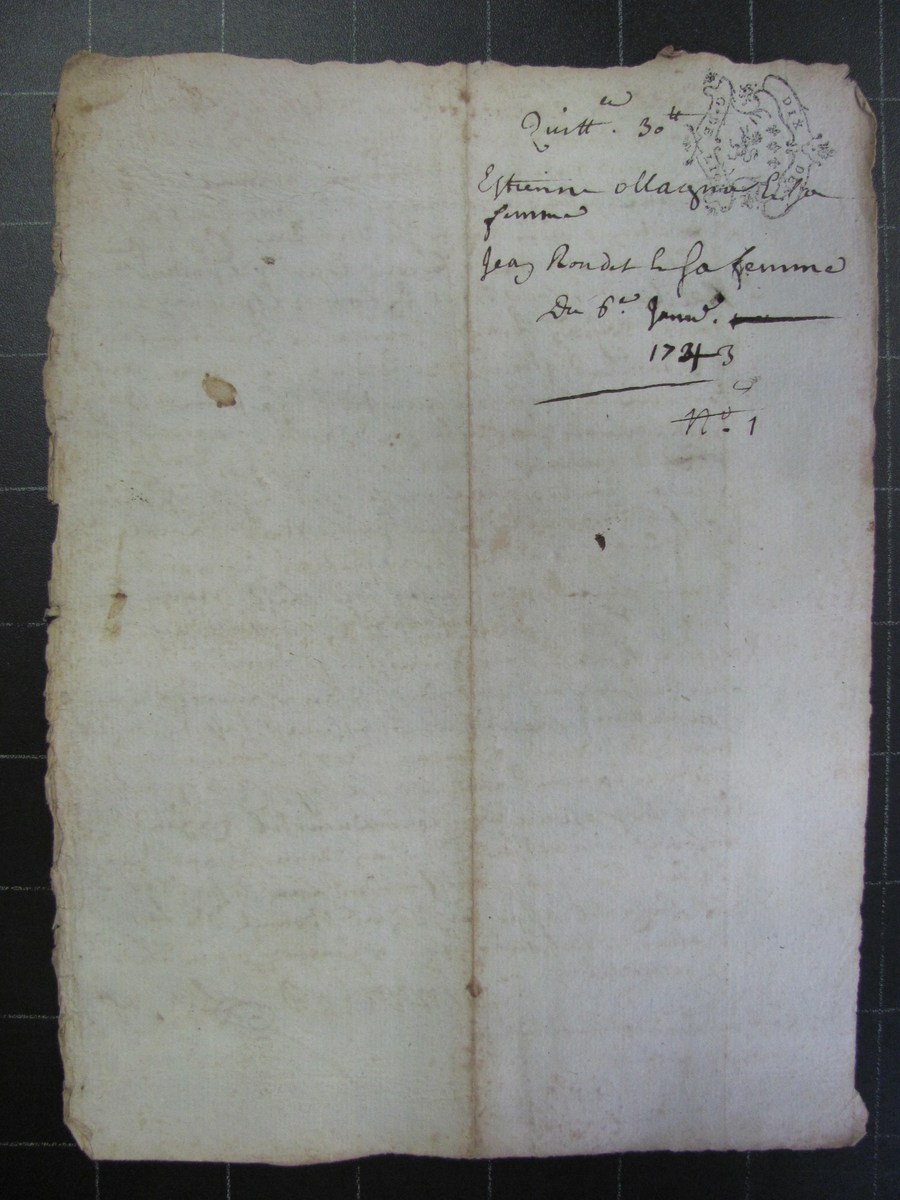 Quitt.ce 30tt
Estienne Magne & sa
femme
Jean Rondet & sa femme
Du 6e Janv.
1743
No. 1
G. DE
DIX DE